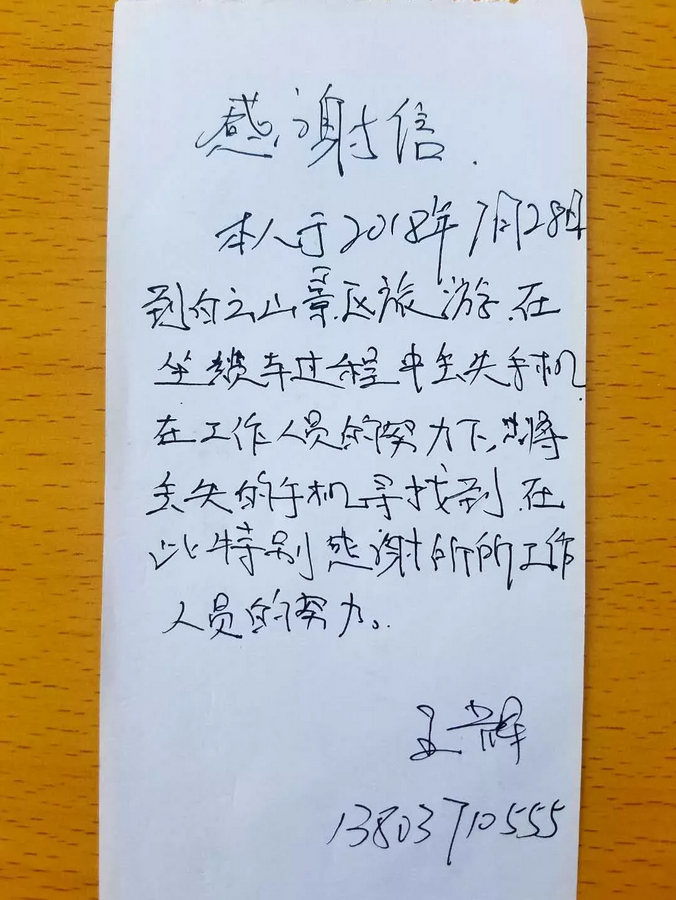 感谢信.
本人于2018年7月28日
到白云山景区旅游.在
坐缆车过程中丢失手机.
在工作人员的努力下,将
丢失的手机寻找到.在
此特别感谢所所工作
人员的努力。
王辉
13803710555